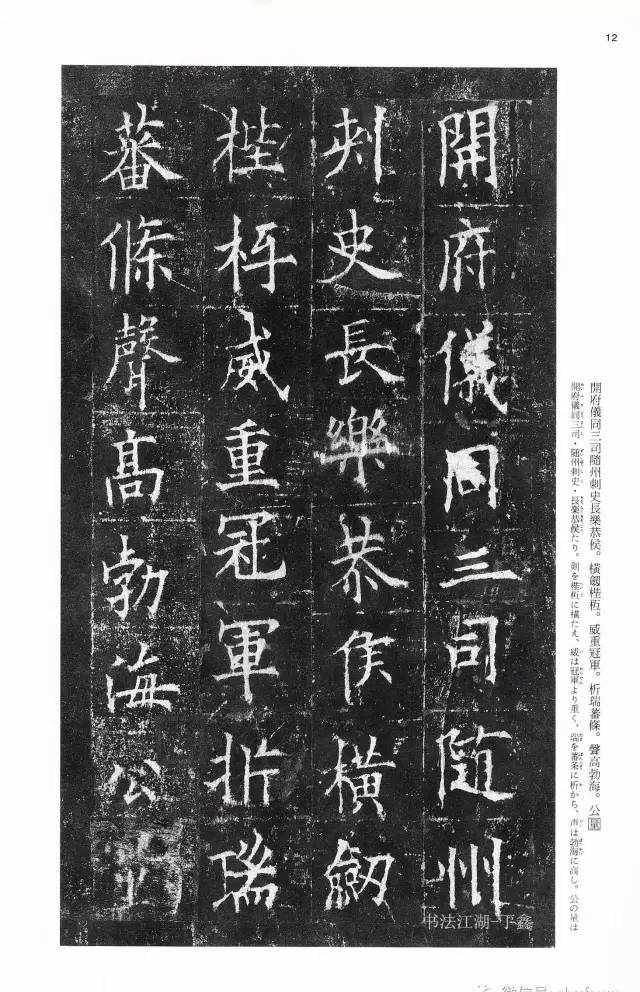 12
開府儀同三司隨州
刾史長樂恭侯橫劒
梐枑威重冠軍析瑞
蕃條聲高勃海公
開府儀同三司隨州刺史長樂恭侯。橫劒梐枑。威重冠軍。析瑞蕃條。聲高勃海。公量
開府儀同三司・随州刺史・長楽恭侯たり。剣を梐枑に横たえ、威は冠軍より重く、瑞を蕃条に析かち、声は勃海に高し。公の量は
书法江湖-丁鑫